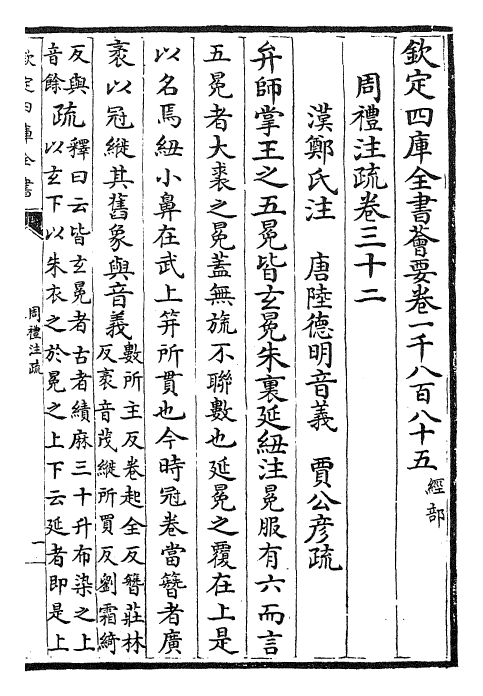 欽定四庫全書薈要卷一千八百八十五 經部
周禮注疏卷三十二
漢鄭氏注 唐陸德明音義 賈公彥疏
弁師掌王之五冕皆玄冕朱裏延紐注冕服有六而言
五冕者大裘之冕蓋無旒不聯數也延冕之覆在上是
以名焉紐小鼻在武上笄所貫也今時冠卷當簪者廣
袤以冠縰其舊象與音義數所主反卷起全反簪莊林
反袤音茂縱所買反劉霜綺
反與
音餘疏釋曰云皆玄冕者古者績麻三十升布染之上
以玄下以朱衣之於冕之上下云延者即是上
欽定四庫全書
周禮注疏
一